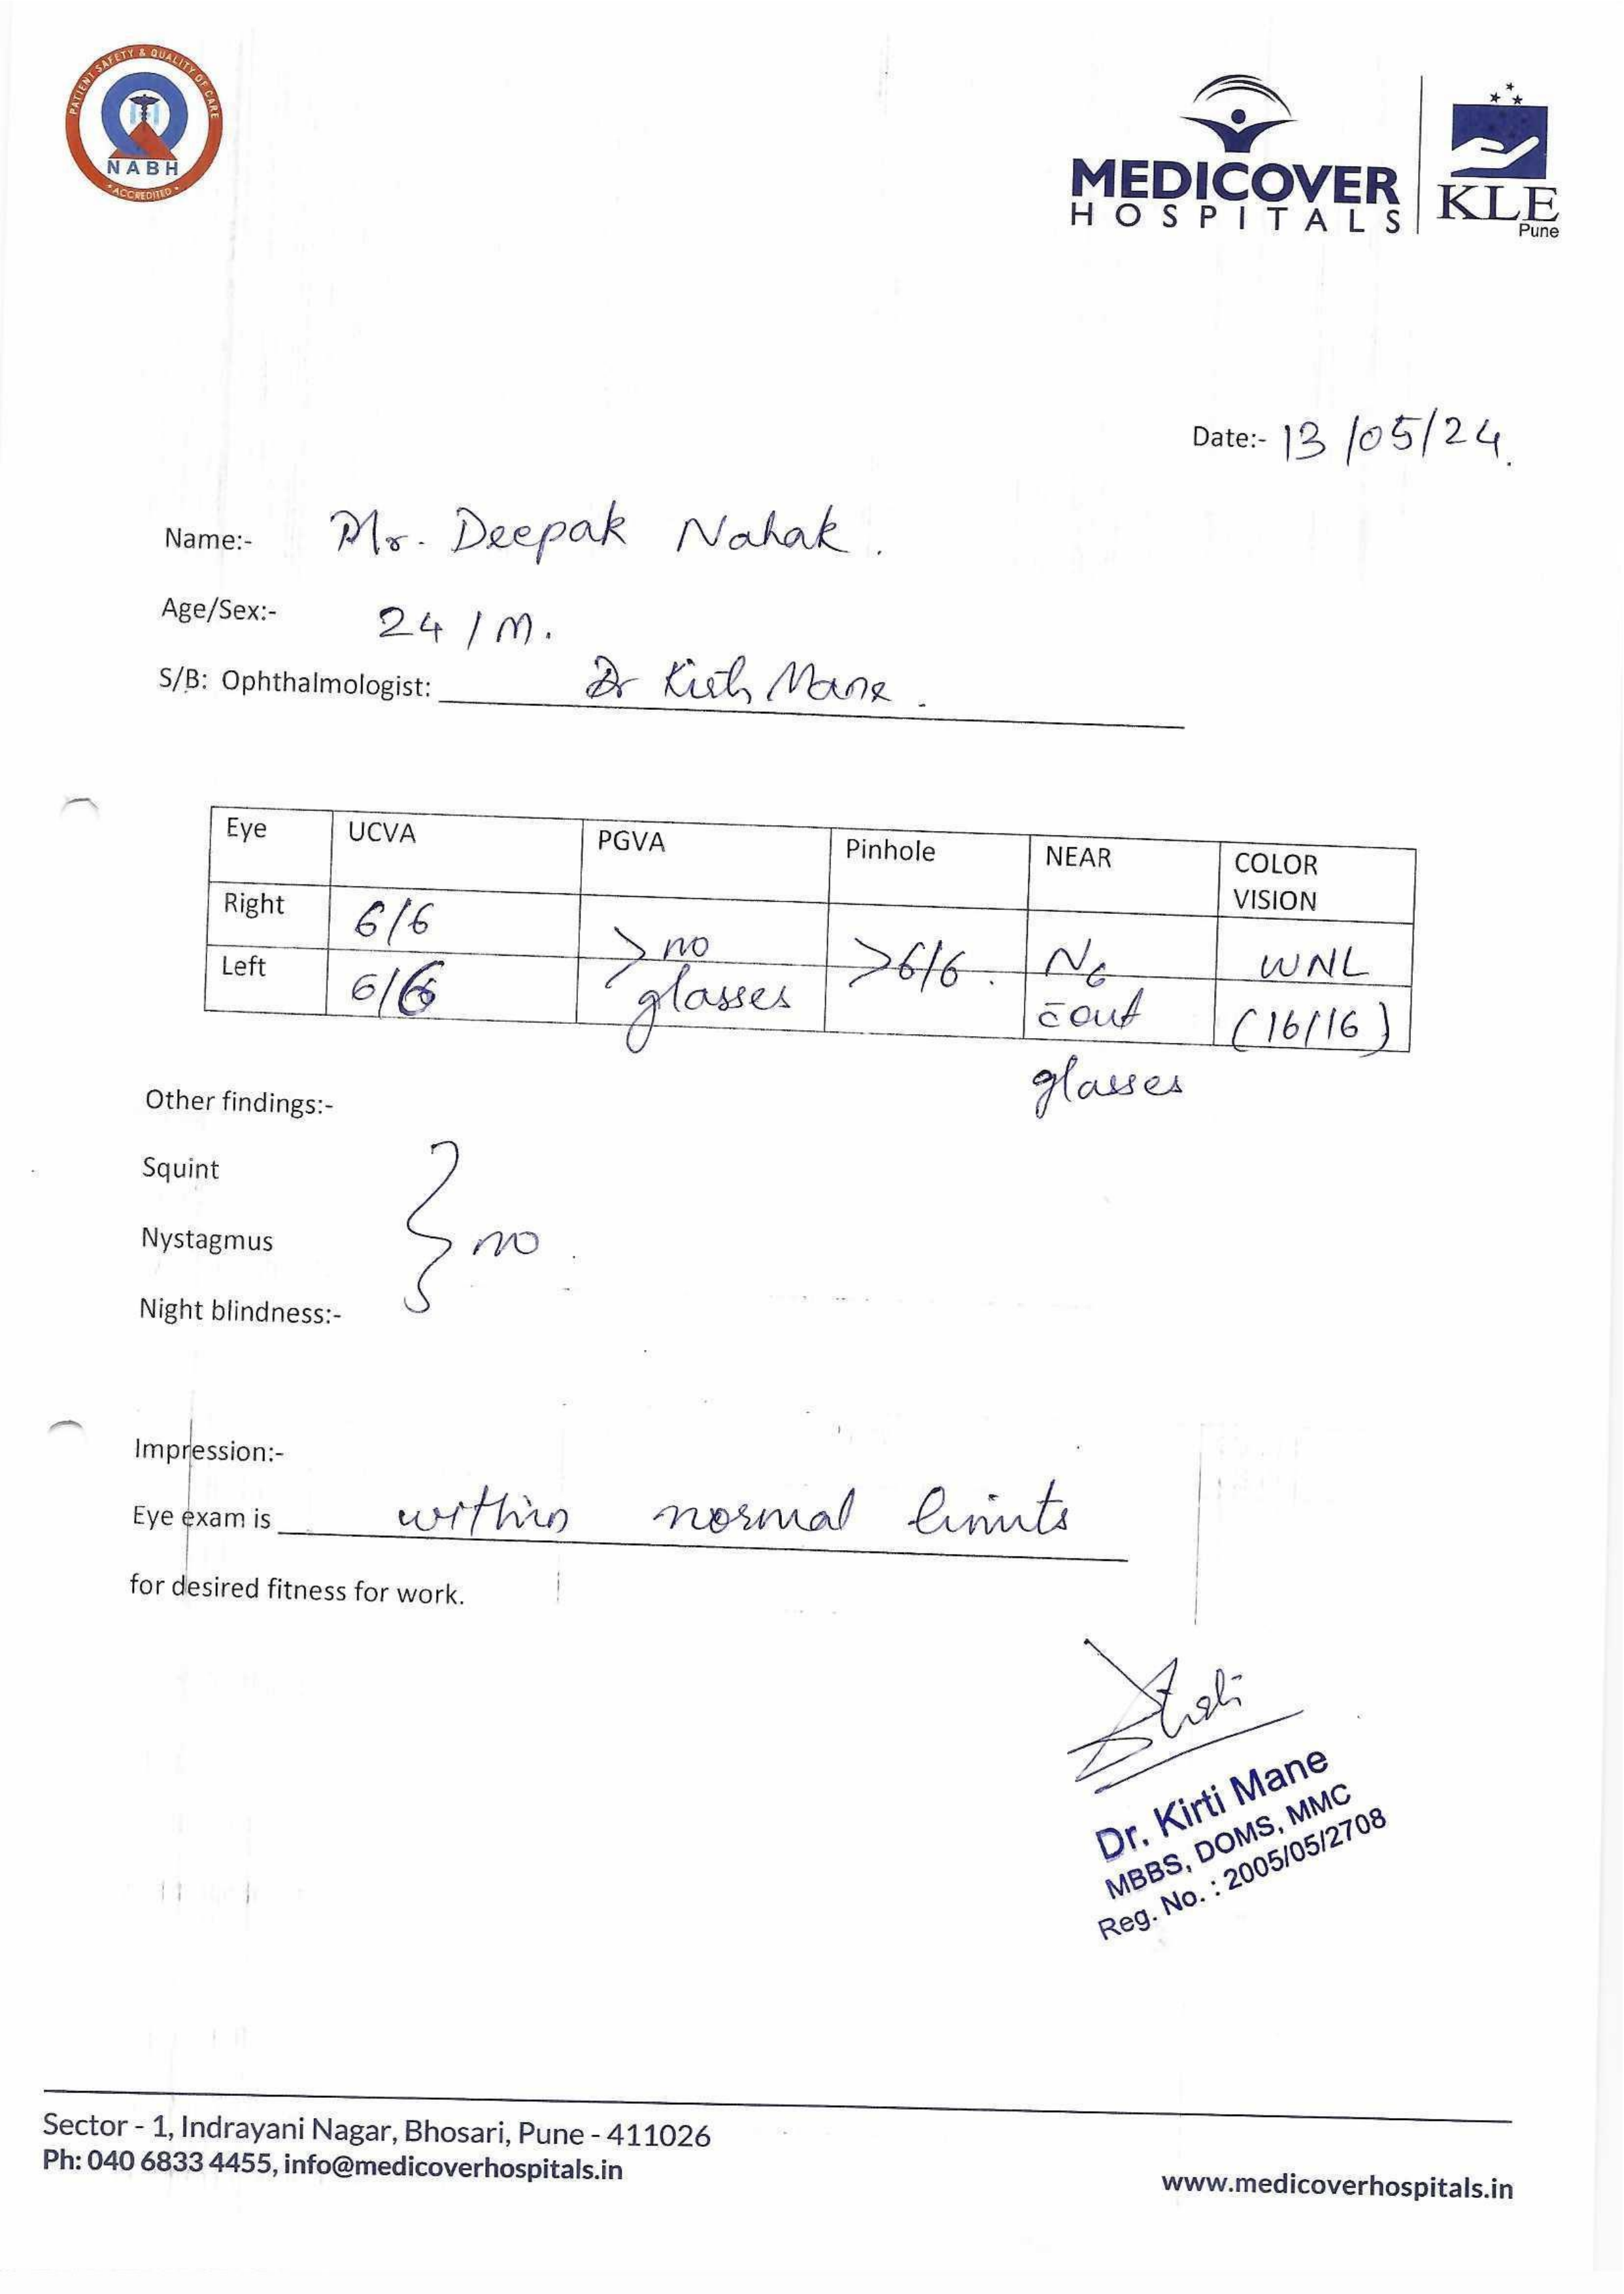 PATIENT SAFETY & QUALITY OF CARE
NABH
• ACCREDITED •
MEDICOVER
HOSPITALS
KLE
Pune
Date:- 13/05/24.
Name:- Mr. Deepak Nahak.
Age/Sex:- 24/M.
S/B: Ophthalmologist: Dr Kirti Mane.
Eye UCVA PGVA Pinhole NEAR COLOR VISION
Right 6/6 > no glasses >6/6. N6 c̄out glasses WNL (16/16)
Left 6/6
Other findings:-
Squint
Nystagmus } no.
Night blindness:-
Impression:-
Eye exam is within normal limits
for desired fitness for work.
Dr. Kirti Mane
MBBS, DOMS, MMC
Reg. No. : 2005/05/2708
Sector - 1, Indrayani Nagar, Bhosari, Pune - 411026
Ph: 040 6833 4455, info@medicoverhospitals.in
www.medicoverhospitals.in